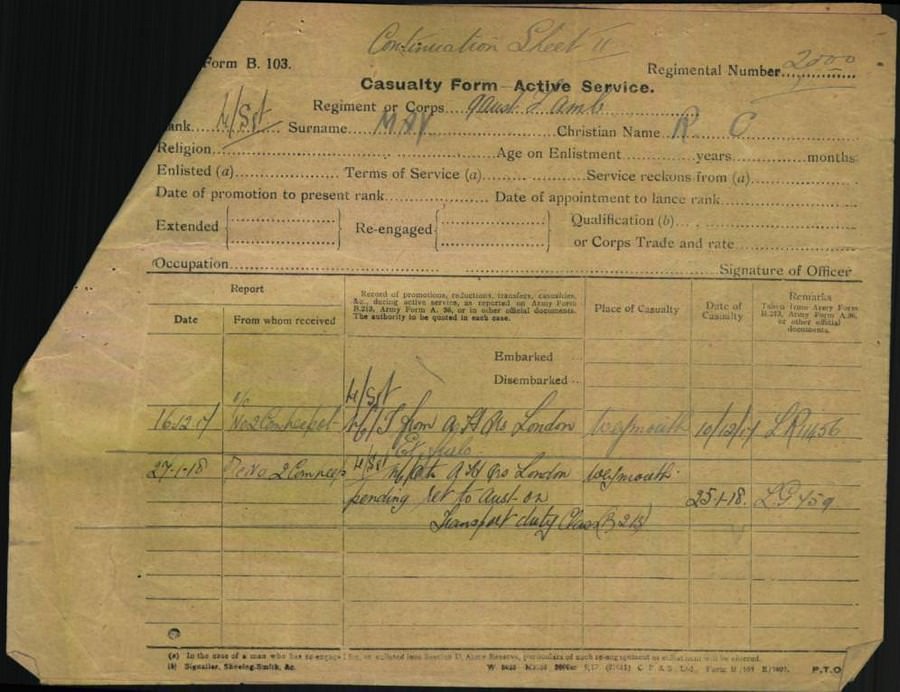 Continuation Sheet II
Form B. 103.
Regimental Number 2000
Casualty Form Active Service.
Regiment or Corps Aust F Amb
Rank S/Sgt Surname MAY Christian Name R C
Religion Age on Enlistment years months
Enlisted (a) Terms of Service (a) Service reckons from (a)
Date of promotion to present rank Date of appointment to lance rank
Extended Re-engaged Qualification (b)
or Corps Trade and rate
Occupation Signature of Officer
Report
Date From whom received
Record of promotions, reductions, transfers, casualties,
&c., during active service, as reported on Army Form
B.213, Army Form A. 36, or in other official documents.
The authority to be quoted in each case.
Place of Casualty
Date of
Casualty
Remarks
Taken from Army Form
B.213, Army Form A.36,
or other official
documents.
Embarked
Disembarked
S/Sgt
16.12.17 No 2 Com Depot from A H Qrs London Weymouth 10/12/17 LR 11456
27-1-18 No 2 Com Dep A H Qrs London Weymouth
pending ret to Aust on 25-1-18.
Transport duty Class B 2 B
(a) In the case of a man who has re-engaged for, or enlisted into Section D, Army Reserve, particulars of such re-engagement or enlistment will be entered.
(b) Signaller, Shoeing-Smith, &c.
P.T.O